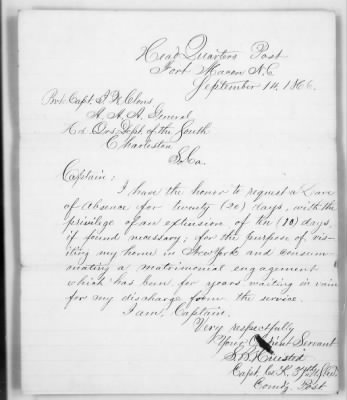 Head Quarters Post
Fort Macon N.C.
September 14, 1866.
Capt. J. W. Clous
A. A. A. General
Hd. Qrs. Dept. of the South
Charleston
So. Ca.
Captain:
I have the honor to request a Leave
of Absence for twenty (20) days, with the
privilege of an extension of ten (10) days,
if found necessary; for the purpose of vis-
iting my home in New York and consum-
mating a matrimonial engagement
which has been for years waiting in vain
for my discharge from the service.
I am, Captain,
Very respectfully
Your Obedient Servant
Capt. Co. K, 37th
Comdg. Post